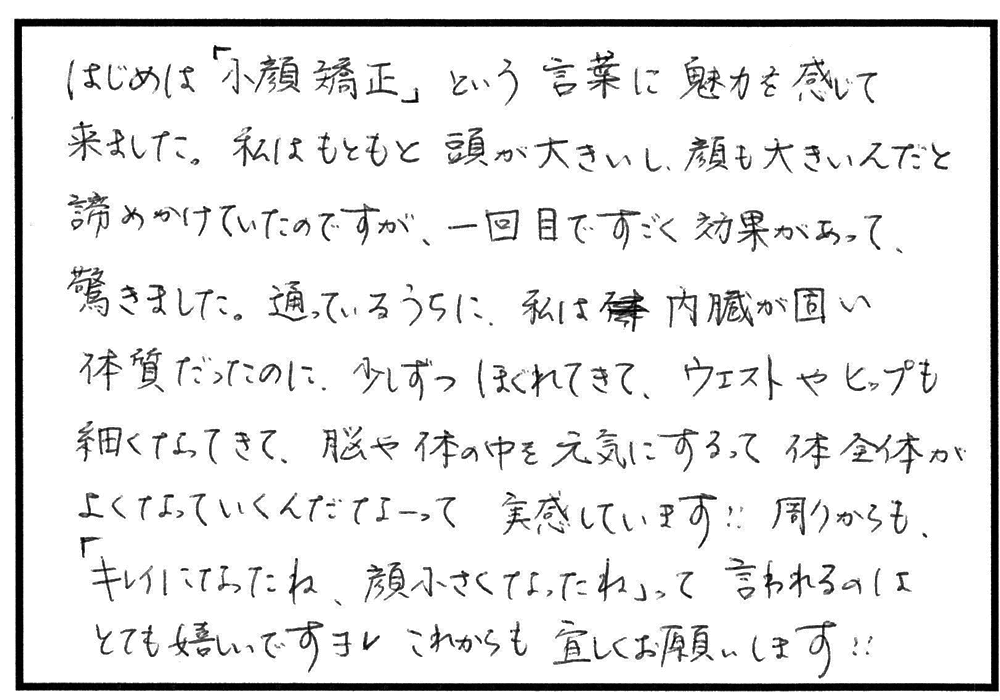 はじめは「小顔矯正」という言葉に魅力を感じて
来ました。私はもともと頭が大きいし、顔も大きいんだと
諦めかけていたのですが、一回目ですごく効果があって、
驚きました。通っているうちに、私は内臓が固い
体質だったのに、少しずつほぐれてきて、ウエストやヒップも
細くなってきて、脳や体の中を元気にするって体全体が
よくなっていくんだなーって実感しています!!周りからも、
「キレイになったね、顔小さくなったね」って言われるのは
とても嬉しいです これからも宜しくお願いします!!